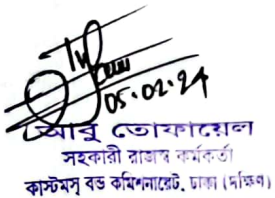 05.02.24
আবু তোফায়েল
সহকারী রাজস্ব কর্মকর্তা
কাস্টমস্ বন্ড কমিশনারেট, ঢাকা (দক্ষিণ)